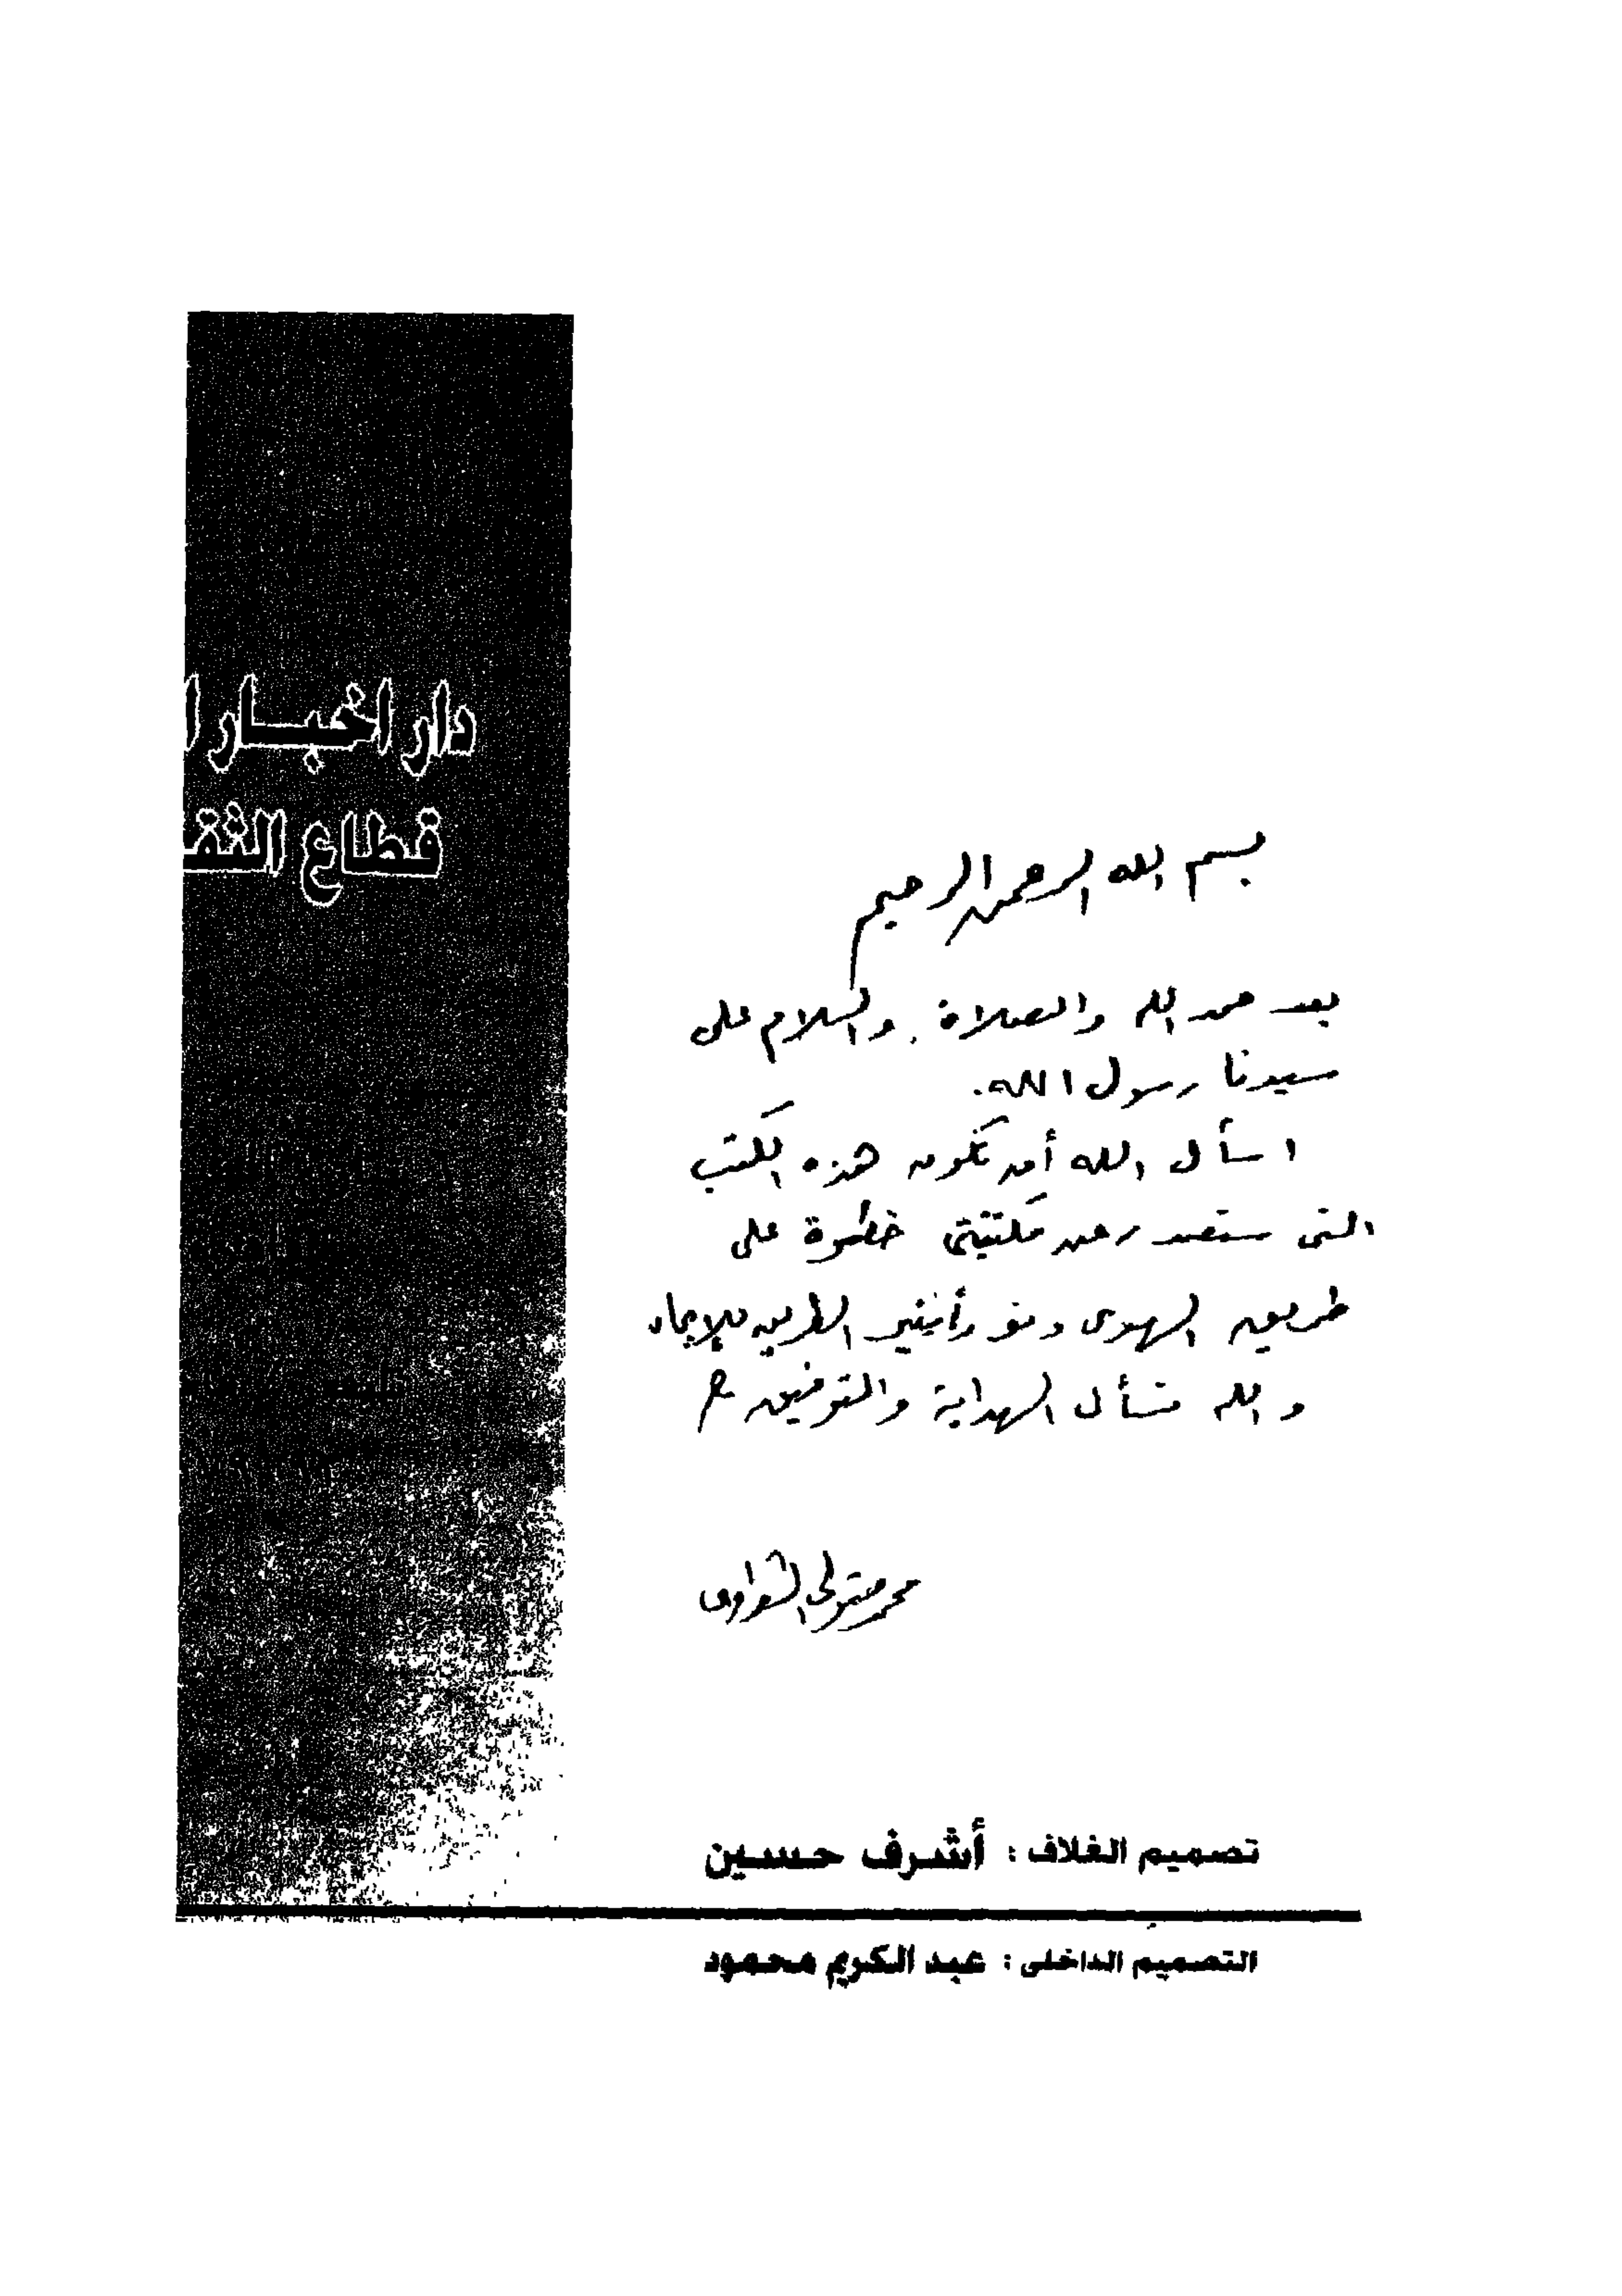 دار اخبار ا
قطاع الثقـ
بسم الله الرحمن الرحيم
بعد حمد الله والصلاة والسلام على
سيدنا رسول الله.
اسأل الله أن تكون هذه الكتب
التى ستصدر عن مكتبتى خطوة على
طريق الهدى ونورا ينير الطريق للإيمان
والله نسأل الهداية والتوفيق
محمد متولى الشعراوى
تصميم الغلاف : أشرف حسين
التصميم الداخلى : عبد الكريم محمود